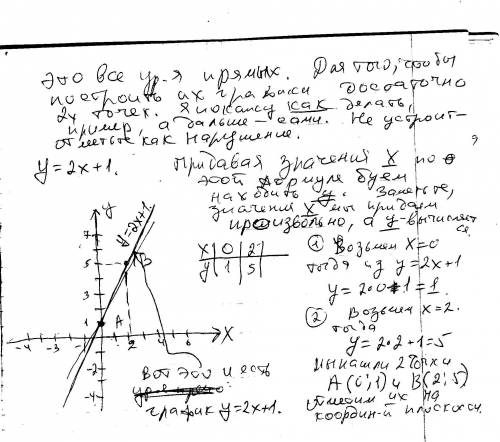 Это все ур-я прямых. Для того, чтобы
построить их графики достаточно
2х точек. Я покажу как делать,
пример, а дальше - сами. Не устроит-
отметьте как нарушение.
y=2x+1. Придавая значения X по
этой формуле буем
находить y. Заметьте,
значения X мы придаем
произвольно, а y-вычисляется.
y
y=2x+1
7
5
3
1
A
B
-4 -2 2 4 6 X
-2
-4
X 0 2
y 1 5
① Возьмем X=0
тогда из y=2x+1
y=2·0+1=1.
② Возьмем x=2.
тогда
y=2·2+1=5
Мы нашли 2 точки
A(0;1) и B(2;5)
Отметим их на
координ-й плоскости.
Вот это и есть
график y=2x+1.